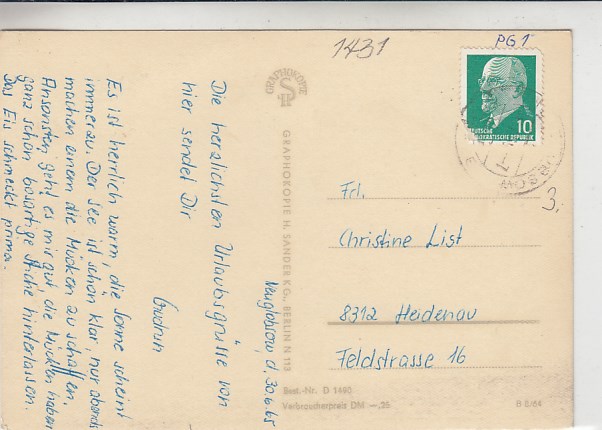 1431
PG 1
10
DEUTSCHE
DEMOKRATISCHE REPUBLIK
3.
GRAPHOKOPIE
GRAPHOKOPIE H. SANDER KG., BERLIN N 113
Neuglobsow, d. 30.6.65
Die herzlichsten Urlaubsgrüsse von
hier sendet Dir
Gudrun
Es ist herrlich warm, die Sonne scheint
immerzu. Der See ist schön klar, nur abends
machen einem die Mücken zu schaffen.
Ansonsten geht es mir gut, die Mücken haben
ganz schön bösartige Stiche hinterlassen.
Das Eis schmeckt prima.
Frl.
Christine List
8312 Heidenau
Feldstrasse 16
Best.-Nr. D 1490
Verbraucherpreis DM —,25
B 2/64